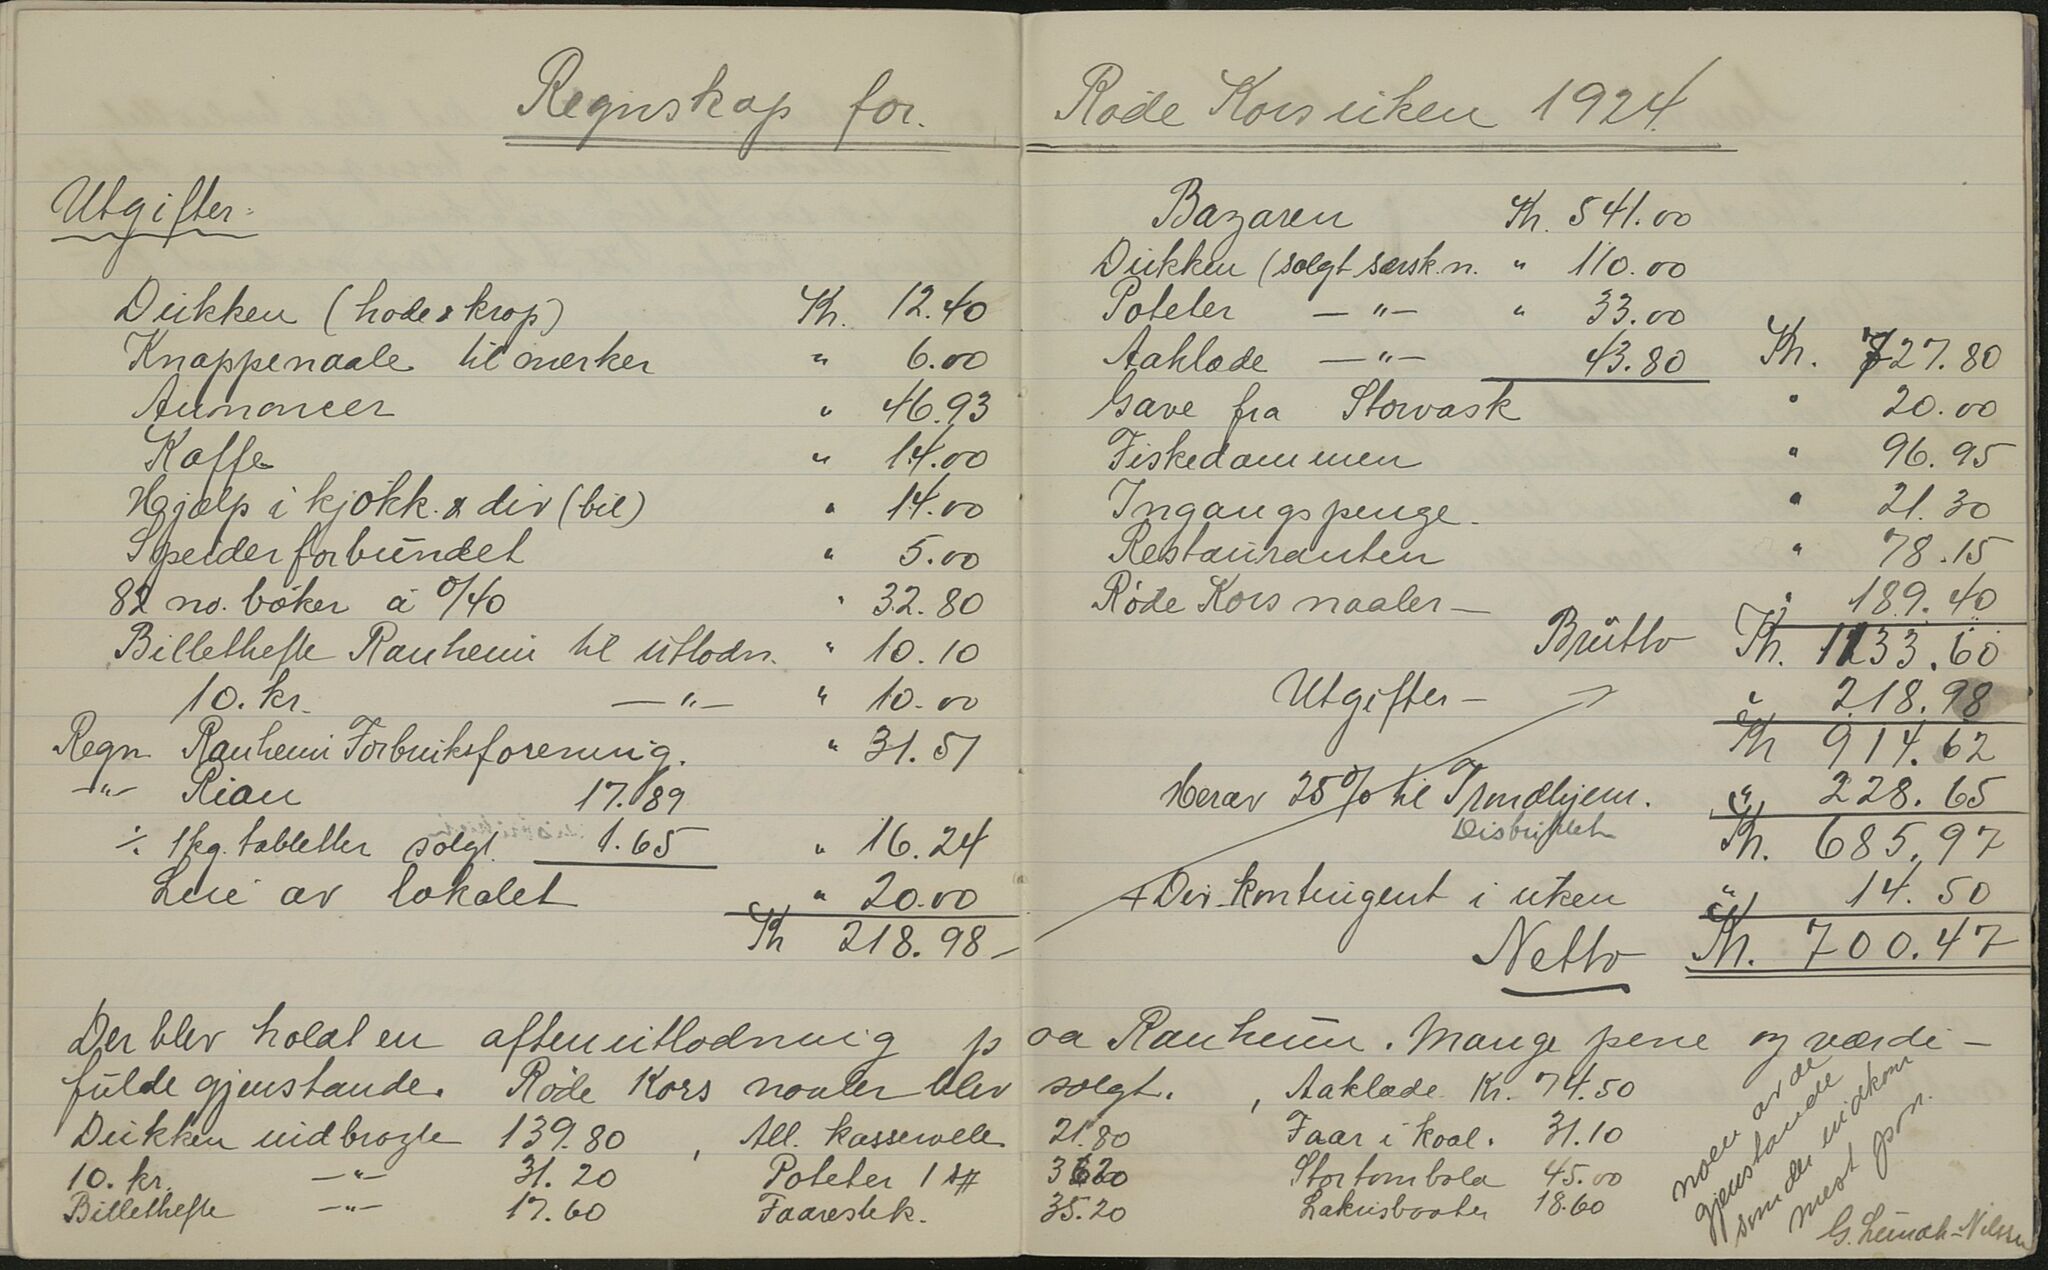 Regnskap for. Røde Kors uken 1924.
Utgifter:
Dukken (hode & krop) Kr. 12.40
Knappenaale til merker " 6.00
Annoncer " 46.93
Kaffe " 14.00
Hjælp i kjøkk. & div (bil) " 14.00
Speiderforbundet " 5.00
82 no. bøker à 0/40 " 32.80
Billethefte Ranheim til utlodn. " 10.10
10. kr. —"— " 10.00
Regn Ranheim Forbruksforening. " 31.51
—"— Rian 17.89
÷ 1 kg. tabletter solgt 1.65 " 16.24
Leie av lokalet " 20.00
Kr 218.98 —
Bazaren Kr. 541.00
Dukken (solgt særsk.n. " 110.00
Poteter —"— " 33.00
Aaklæde —"— 43.80 Kr. 727.80
Gave fra Storvask " 20.00
Fiskedammen " 96.95
Ingangspenge. " 21.30
Restauranten " 78.15
Røde Kors naaler — " 189.40
Brutto Kr. 1133.60
Utgifter — " 218.98
Kr 914.62
Herav 25% til Trondhjem. " 228.65
Distriktet Kr. 685.97
+ Div. kontingent i uken " 14.50
Netto Kr. 700.47
Der blev holdt en aftenutlodning paa Ranheim. Mange pene og værdi-
fulde gjenstande. Røde Kors naaler blev solgt. , Aaklæde Kr. 74.50
Dukken indbragte 139.80 , All. kasserolle 21.80 Faar i kaal. 31.10
10. kr. —"— 31.20 Poteter 1 s# 36.20 Stortombola 45.00
Billethefte —"— 17.60 Faarestek. 35.20 Lakrisbaater 18.60
noen av de
gjenstande
som der indkom
mest paa.
G. Lemak-Nilssen